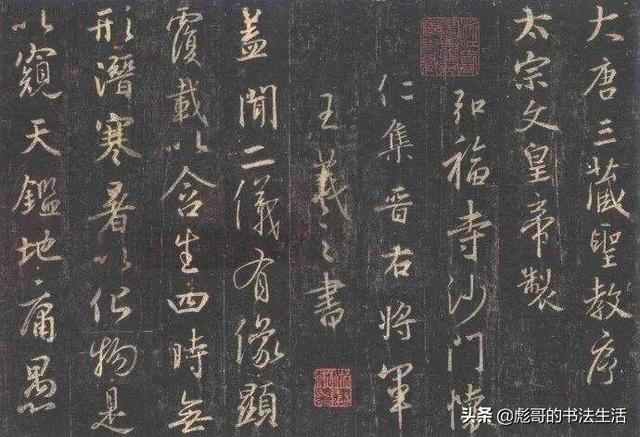 大唐三藏聖教序
太宗文皇帝製
弘福寺沙門懷
仁集晉右將軍
王羲之書
盖聞二儀有像顯
覆載以含生四時無
形潛寒暑以化物是
以窺天鑑地庸愚
头条 @彪哥的书法生活